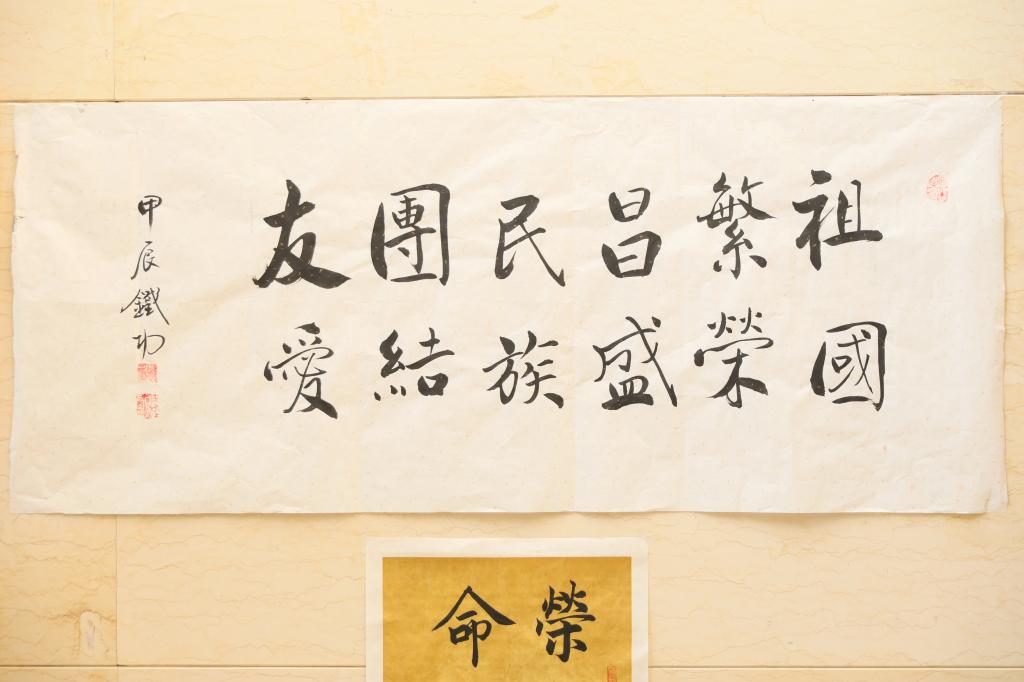 祖國
繁榮
昌盛
民族
團結
友愛
甲辰鐵功
榮
命